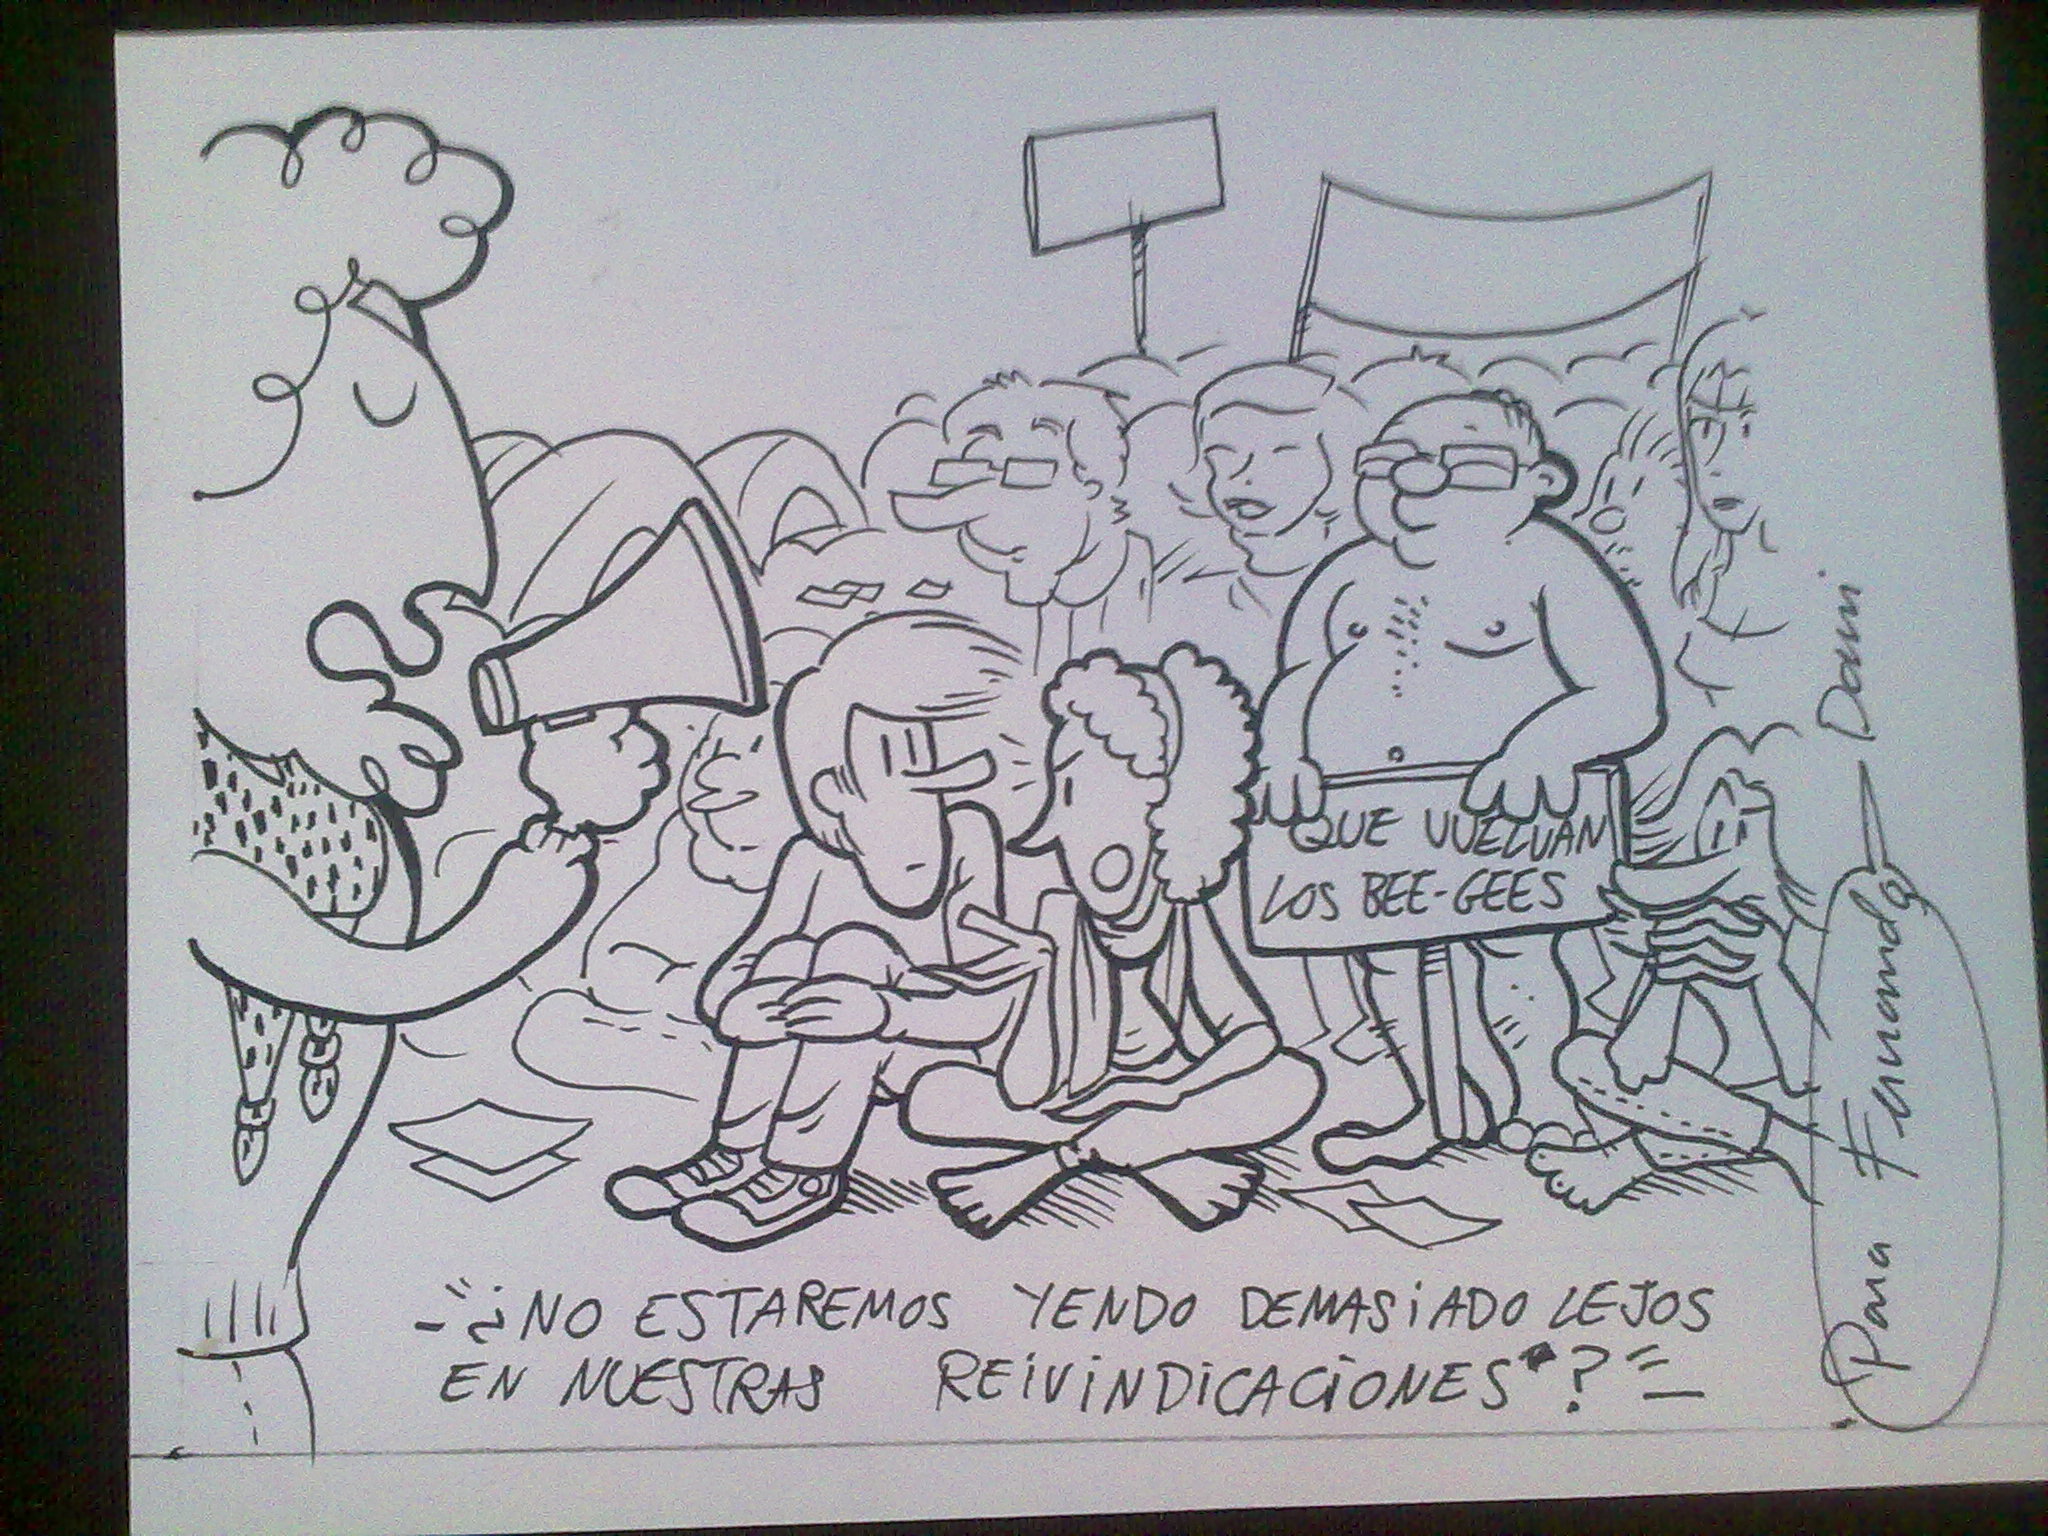 QUE VUELVAN
LOS BEE-GEES
-"¿NO ESTAREMOS YENDO DEMASiADO LEJOS
EN NUESTRAS REiViNDiCACiONES"?"-
Para Fernando
Dani